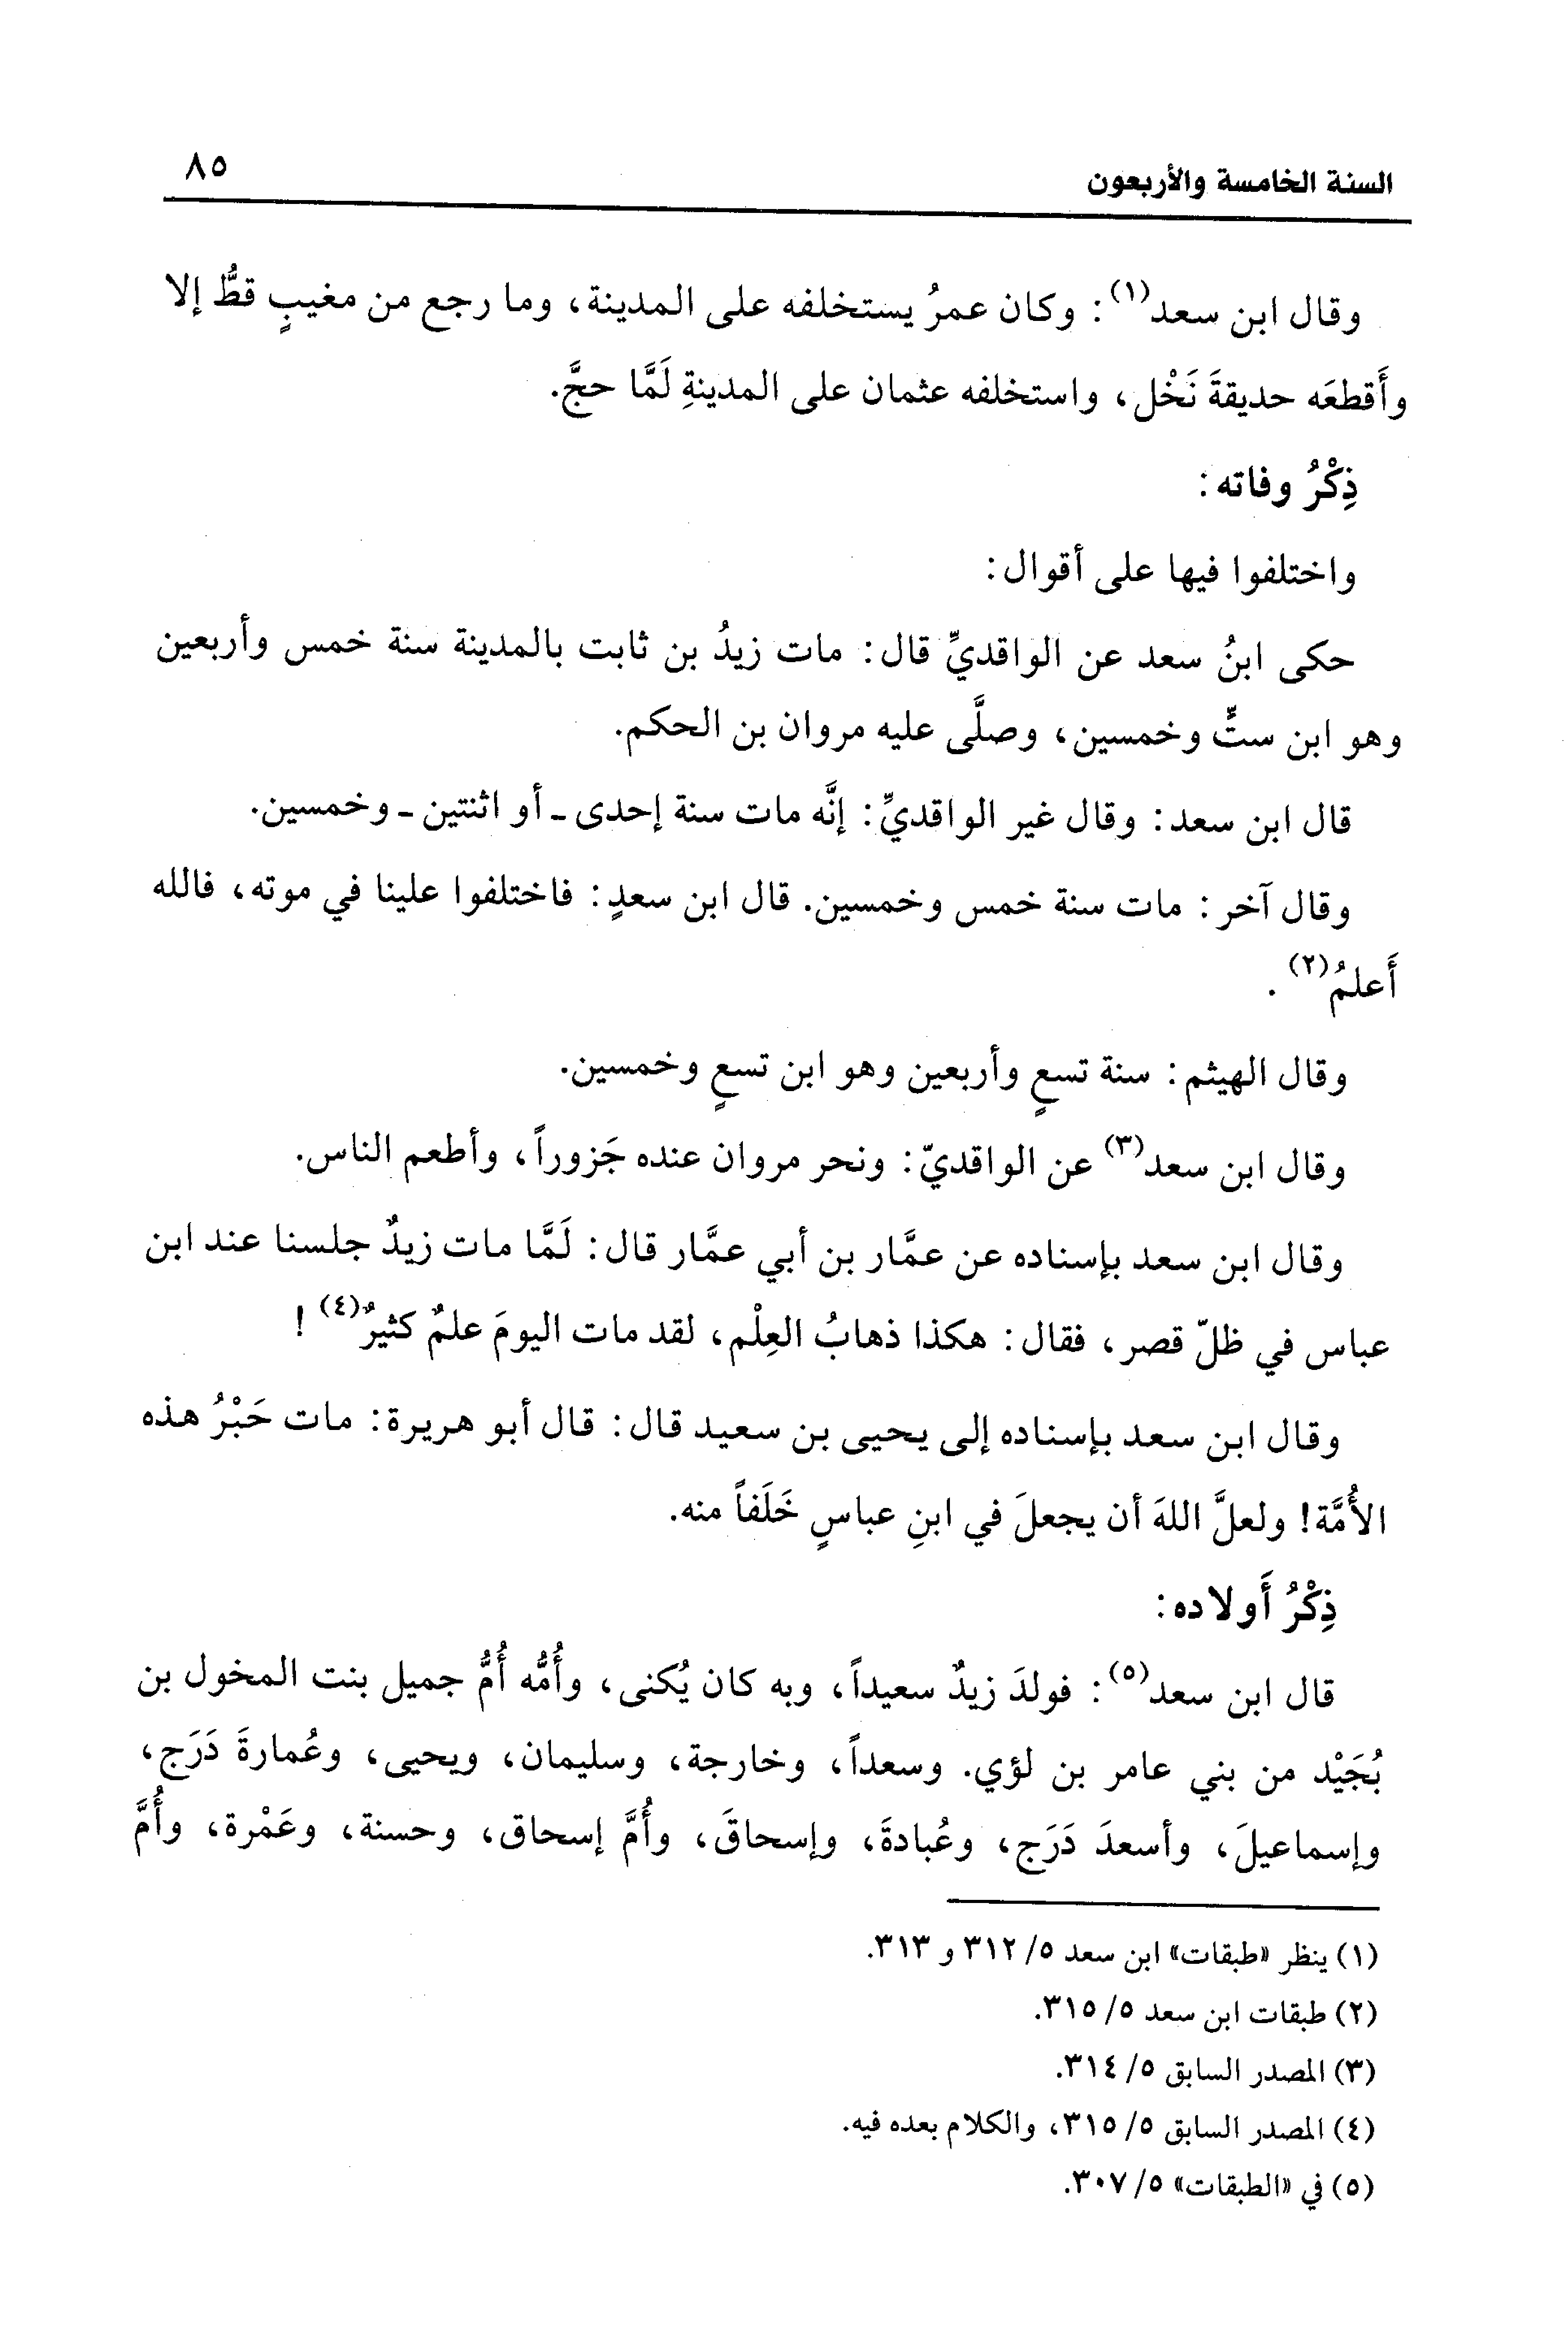 السنة الخامسة والأربعون ٨٥
وقال ابن سعد(١): وكان عمرُ يستخلفه على المدينة، وما رجع من مغيبٍ قطُّ إلا
وأَقطعَه حديقةَ نَخْل، واستخلفه عثمان على المدينةِ لَمَّا حجَّ.
ذِكْرُ وفاته:
واختلفوا فيها على أقوال:
حكى ابنُ سعد عن الواقديِّ قال: مات زيدُ بن ثابت بالمدينة سنة خمس وأربعين
وهو ابن ستٍّ وخمسين، وصلَّى عليه مروان بن الحكم.
قال ابن سعد: وقال غير الواقديِّ: إنَّه مات سنة إحدى ـ أو اثنتين ـ وخمسين.
وقال آخر: مات سنة خمس وخمسين. قال ابن سعدٍ: فاختلفوا علينا في موته، فالله
أَعلمُ(٢).
وقال الهيثم: سنة تسعٍ وأربعين وهو ابن تسعٍ وخمسين.
وقال ابن سعد(٣) عن الواقديّ: ونحر مروان عنده جَزوراً، وأطعم الناس.
وقال ابن سعد بإسناده عن عمَّار بن أبي عمَّار قال: لَمَّا مات زيدٌ جلسنا عند ابن
عباس في ظلّ قصر، فقال: هكذا ذهابُ العِلْم، لقد مات اليومَ علمٌ كثيرٌ(٤)!
وقال ابن سعد بإسناده إلى يحيى بن سعيد قال: قال أبو هريرة: مات حَبْرُ هذه
الأُمَّة! ولعلَّ اللهَ أن يجعلَ في ابنِ عباسٍ خَلَفاً منه.
ذِكْرُ أَولاده:
قال ابن سعد(٥): فولدَ زيدٌ سعيداً، وبه كان يُكنى، وأُمُّه أُمُّ جميل بنت المخول بن
بُجَيْد من بني عامر بن لؤي. وسعداً، وخارجة، وسليمان، ويحيى، وعُمارةَ دَرَج،
وإسماعيلَ، وأسعدَ دَرَج، وعُبادةَ، وإسحاقَ، وأُمَّ إسحاق، وحسنة، وعَمْرة، وأُمَّ
(١) ينظر «طبقات» ابن سعد ٥/ ٣١٢ و ٣١٣.
(٢) طبقات ابن سعد ٥/ ٣١٥.
(٣) المصدر السابق ٥/ ٣١٤.
(٤) المصدر السابق ٥/ ٣١٥، والكلام بعده فيه.
(٥) في «الطبقات» ٥/ ٣٠٧.